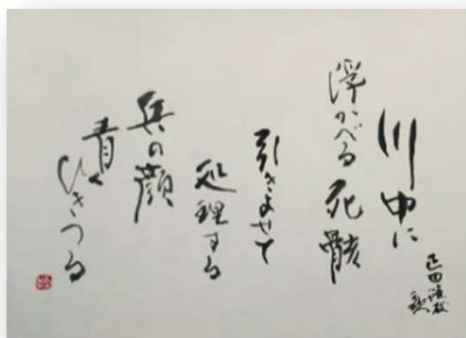 正田篠枝
歌
川中に
浮かべる死骸
引きよせて
処理する
兵の顔
青く
ひきつる